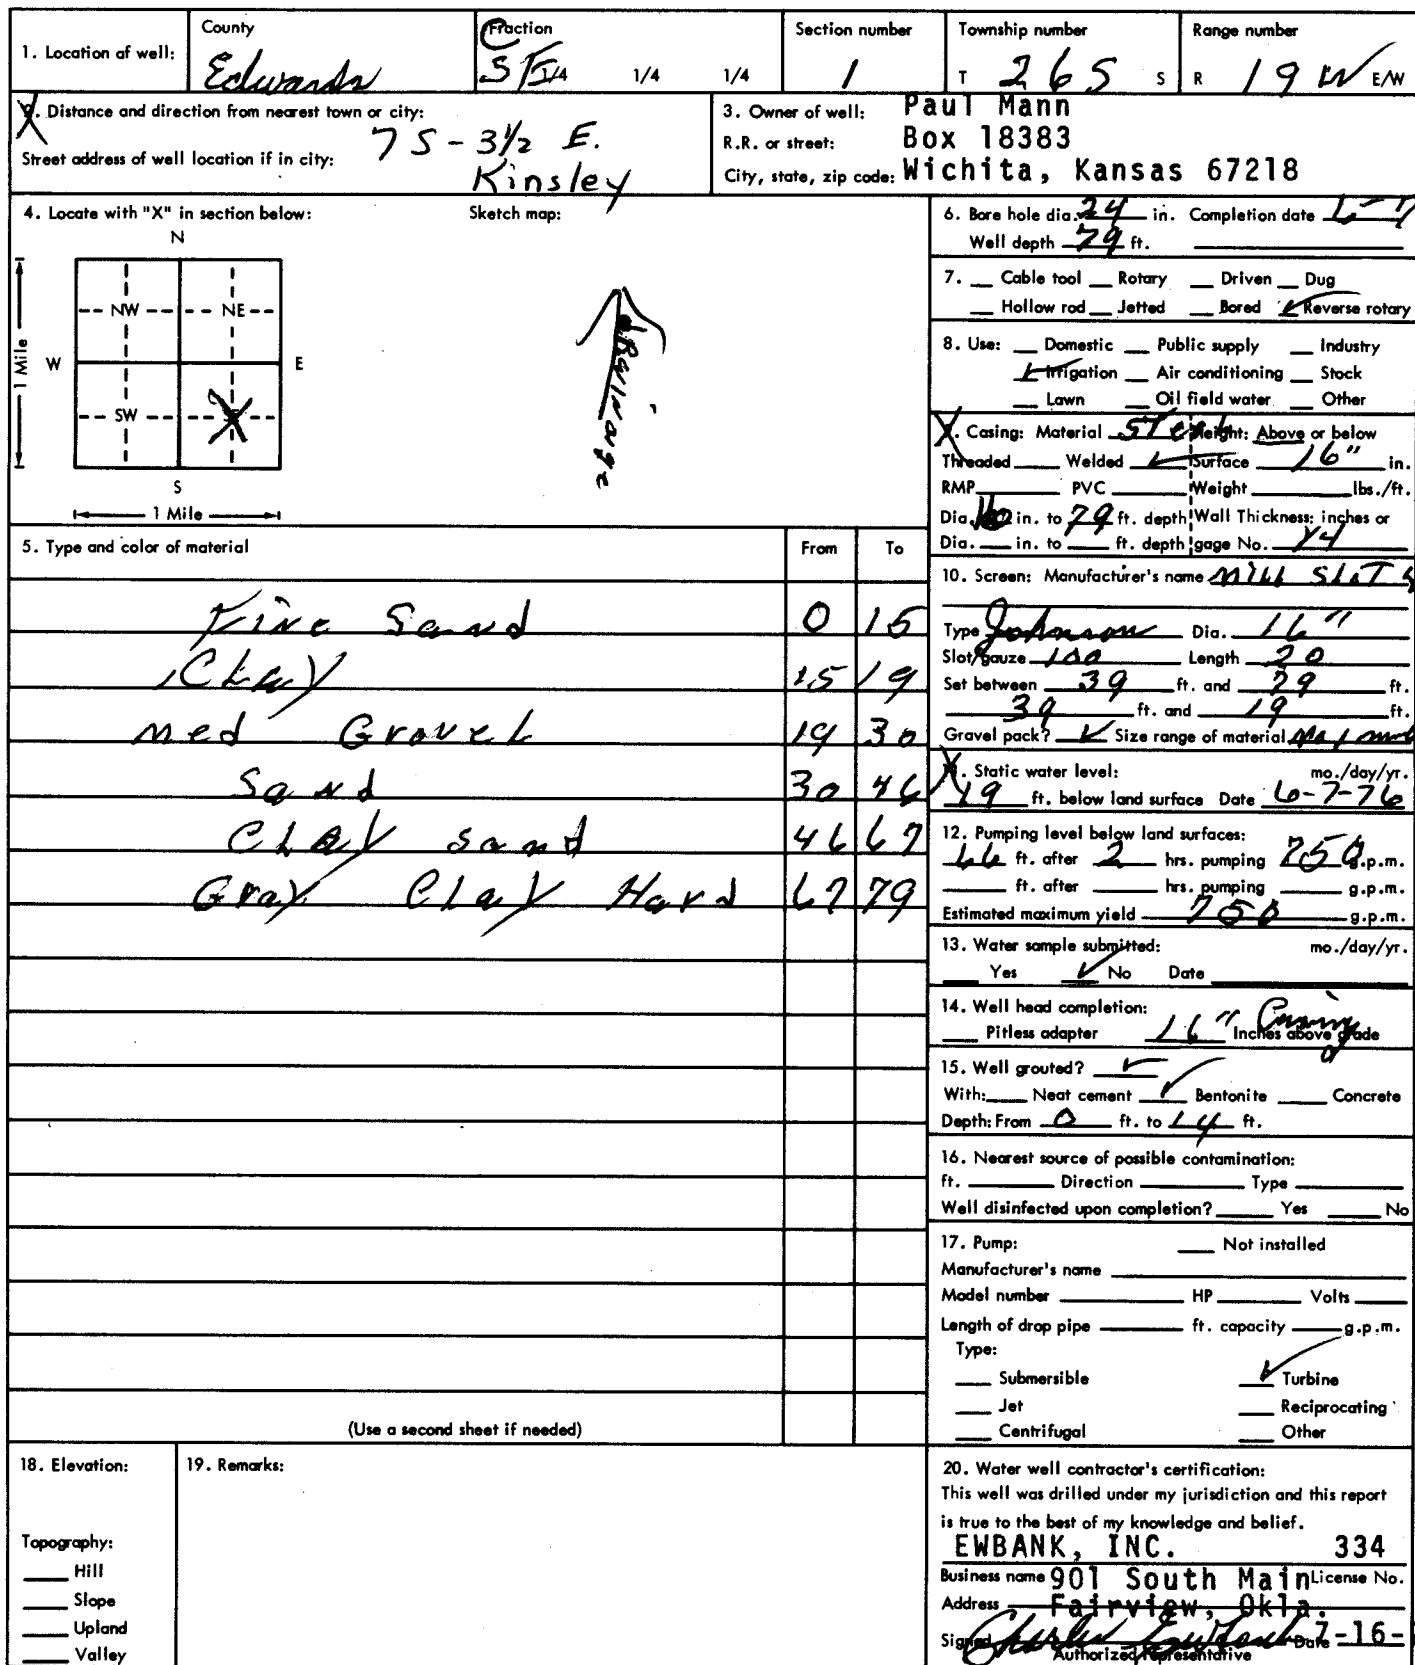 1. Location of well:
County
Edwards
Fraction
C
SE 1/4 1/4 1/4
Section number
1
Township number
T 26S S
Range number
R 19 W E/W
Distance and direction from nearest town or city: 7 S - 3 1/2 E.
Street address of well location if in city: Kinsley
3. Owner of well: Paul Mann
R.R. or street: Box 18383
City, state, zip code: Wichita, Kansas 67218
4. Locate with "X" in section below: Sketch map:
N
NW NE
W E
SW
S
1 Mile
1 Mile
drainage
5. Type and color of material From To
Fine Sand 0 15
Clay 15 19
med Gravel 19 30
Sand 30 46
Clay sand 46 67
Gray Clay Hard 67 79
(Use a second sheet if needed)
6. Bore hole dia. 24 in. Completion date
Well depth 79 ft.
7. Cable tool Rotary Driven Dug
Hollow rod Jetted Bored Reverse rotary
8. Use: Domestic Public supply Industry
Irrigation Air conditioning Stock
Lawn Oil field water Other
Casing: Material Steel Height: Above or below
Threaded Welded Surface 16" in.
RMP PVC Weight lbs./ft.
Dia. 16 in. to 79 ft. depth Wall Thickness: inches or
Dia. in. to ft. depth gage No. 1/4
10. Screen: Manufacturer's name Mill Slot &
Type Johnson Dia. 16"
Slot/gauze 100 Length 20
Set between 39 ft. and 79 ft.
39 ft. and 19 ft.
Gravel pack? Size range of material
Static water level: mo./day/yr.
19 ft. below land surface Date 6-7-76
12. Pumping level below land surfaces:
66 ft. after 2 hrs. pumping 750 g.p.m.
ft. after hrs. pumping g.p.m.
Estimated maximum yield 750 g.p.m.
13. Water sample submitted: mo./day/yr.
Yes No Date
14. Well head completion:
Pitless adapter 16" Casing Inches above grade
15. Well grouted?
With: Neat cement Bentonite Concrete
Depth: From 0 ft. to 14 ft.
16. Nearest source of possible contamination:
ft. Direction Type
Well disinfected upon completion? Yes No
17. Pump: Not installed
Manufacturer's name
Model number HP Volts
Length of drop pipe ft. capacity g.p.m.
Type:
Submersible Turbine
Jet Reciprocating
Centrifugal Other
18. Elevation:
Topography:
Hill
Slope
Upland
Valley
19. Remarks:
20. Water well contractor's certification:
This well was drilled under my jurisdiction and this report
is true to the best of my knowledge and belief.
EWBANK, INC. 334
Business name 901 South Main License No.
Address Fairview, Okla.
Signed Charles Ewbank Date 7-16-
Authorized representative